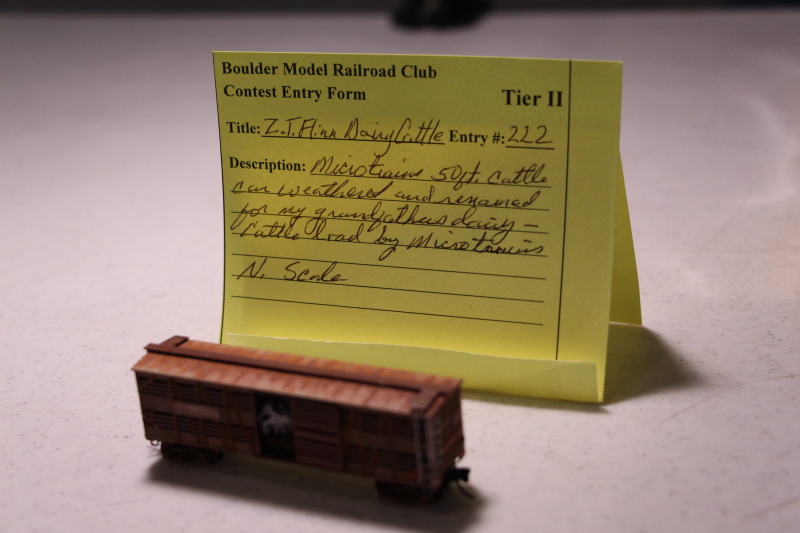 Boulder Model Railroad Club
Contest Entry Form
Tier II
Title: Z.T. Flinn Dairy Cattle Entry #: 222
Description: Microtrains 50ft. cattle
car weathered and renamed
for my grandfathers dairy –
Cattle load by Microtrains
N. Scale